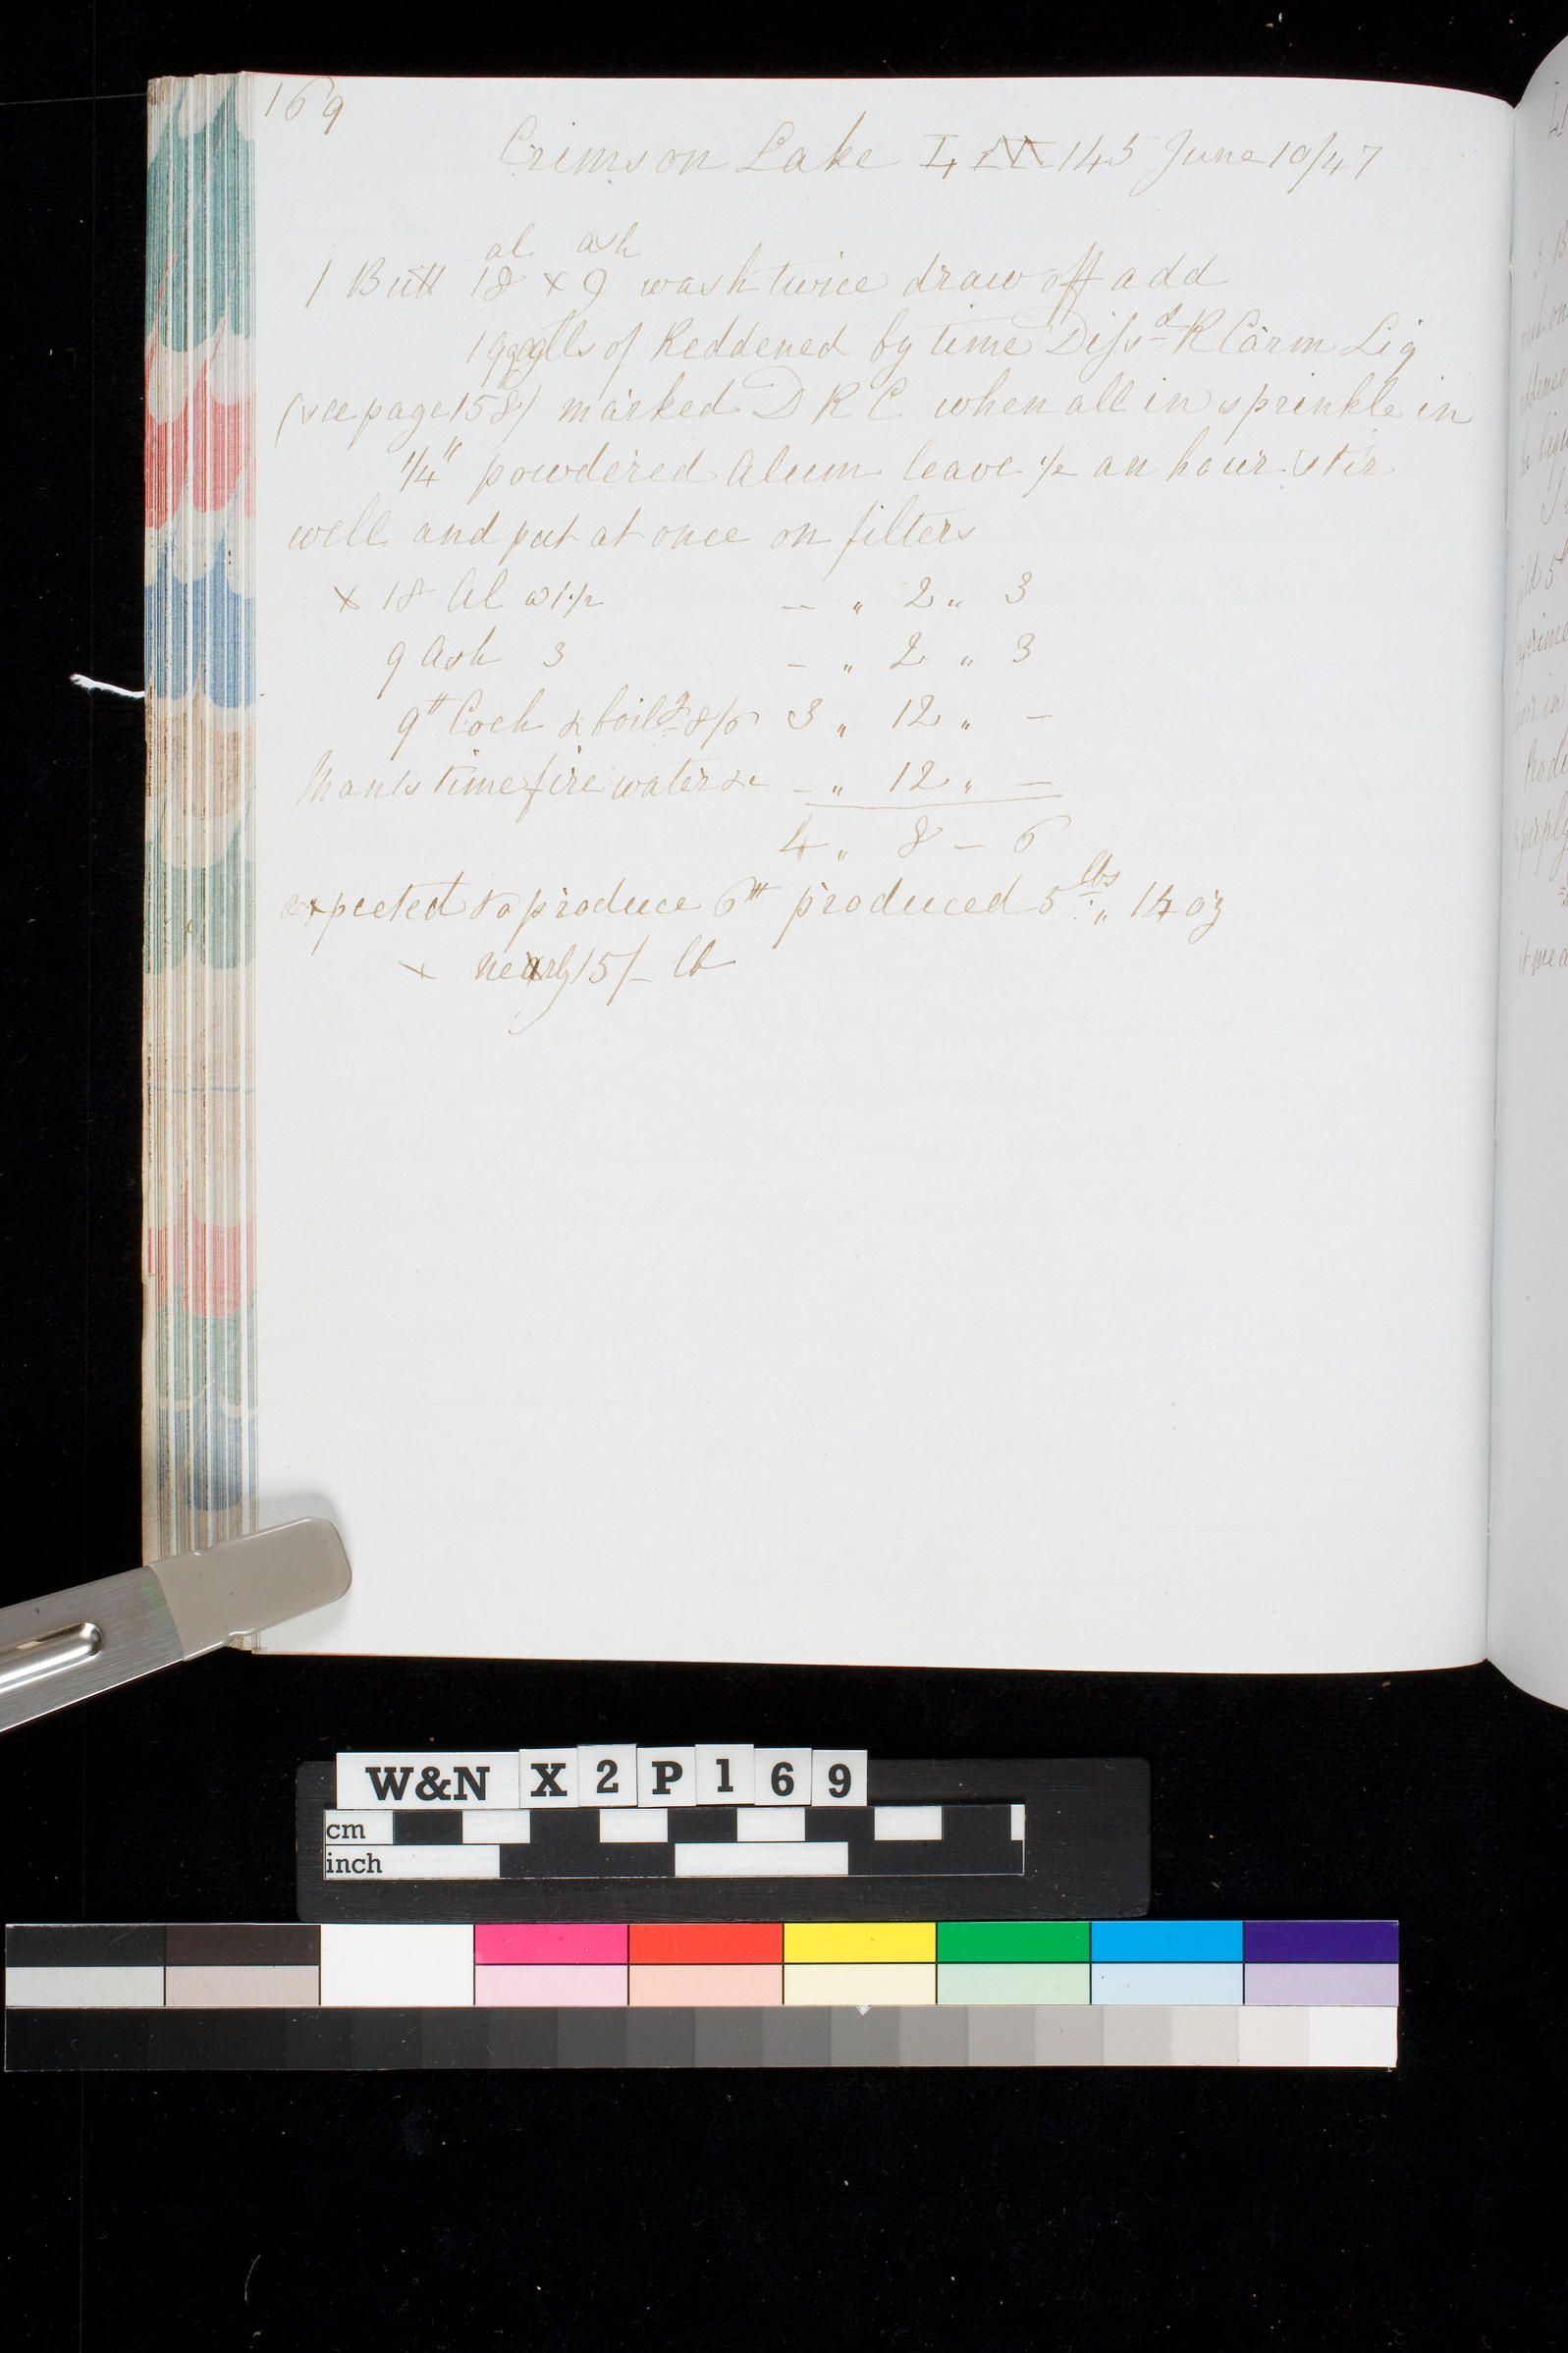 169
Crimson Lake I, 145 June 10/47
al ash
1 Butt 18 x 9 wash twice draw off add
galls of Reddened by time Dissd R Carm Liq
(see page 158) marked D R C when all in sprinkle in
1/4" powdered Alum leave 1/2 an hour stir
well and put at once on filters
x 18 Al @ 1 1/2 – " 2 " 3
9 Ash 3 – " 2 " 3
9# Coch & boilg 8/6 3 " 12 " –
Mans time fire water &c – " 12 " –
4 " 8 – 6
expected to produce 6# produced 5 lbs " 14 oz
x nearly 15/– lb
W&N X 2 P 1 6 9
cm
inch